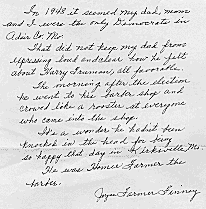 In 1948 it seemed my dad, mom
and I were the only Democrats in
Adair Co. Mo.
That did not keep my dad from
expressing loud and clear how he felt
about Harry Truman, all favorable.
The morning after the election
he went to his barber shop and
crowed like a rooster at everyone
who came into the shop.
It's a wonder he hadn't been
knocked in the head for being
so happy that day in Kirksville, Mo.
He was Homer Farmer the
barber.
Joyce Farmer Finney